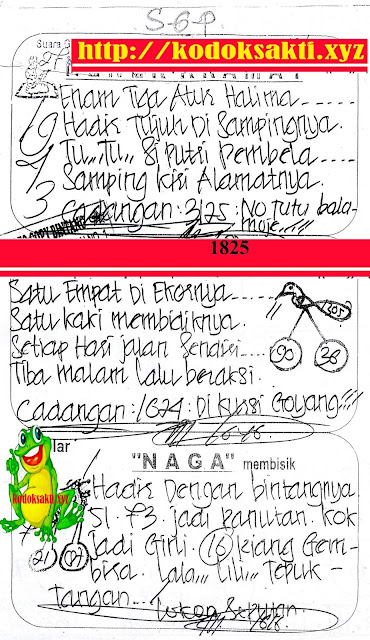 S-G-P
Suara G
http://kodoksakti.xyz
Enam Tiga Atuk Halima-----
Hadir Tujuh Di Sampingnya.
Tu,,,,Tu,,, Si putri Pembela----
Samping kiri Alamatnya.
Cadangan: 3175: No Tutu bala-
moje,,,!!!
1825
Satu Empat Di Ekornya----
Satu kaki membidiknya.
Setiap Hari jalan Sendiri----
Tiba malam Lalu beraksi.
Cadangan: 1674: Di kursi Goyang!!!
90
lar
"NAGA" membisik
kodoksakti.xyz
Hadir Dengan bintangnya
51. 73. jadi panutan. kok
jadi Girli. 16 kiang Gem-
bira. Lala,,, Lili,,, Tepuk-
tangan---
21